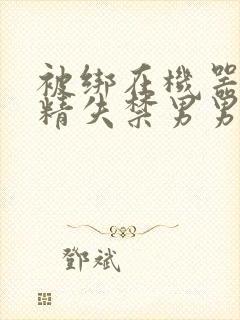 被绑在機器
精失禁男男
鄧斌